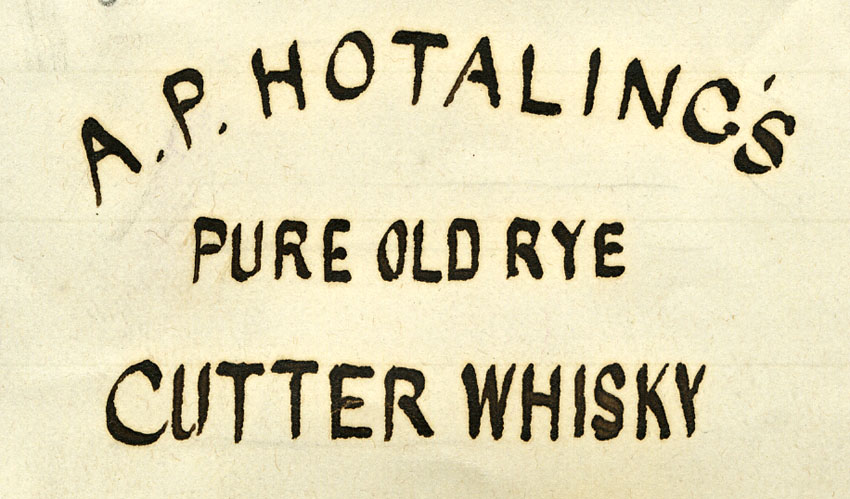 A.P. HOTALING'S
PURE OLD RYE
CUTTER WHISKY